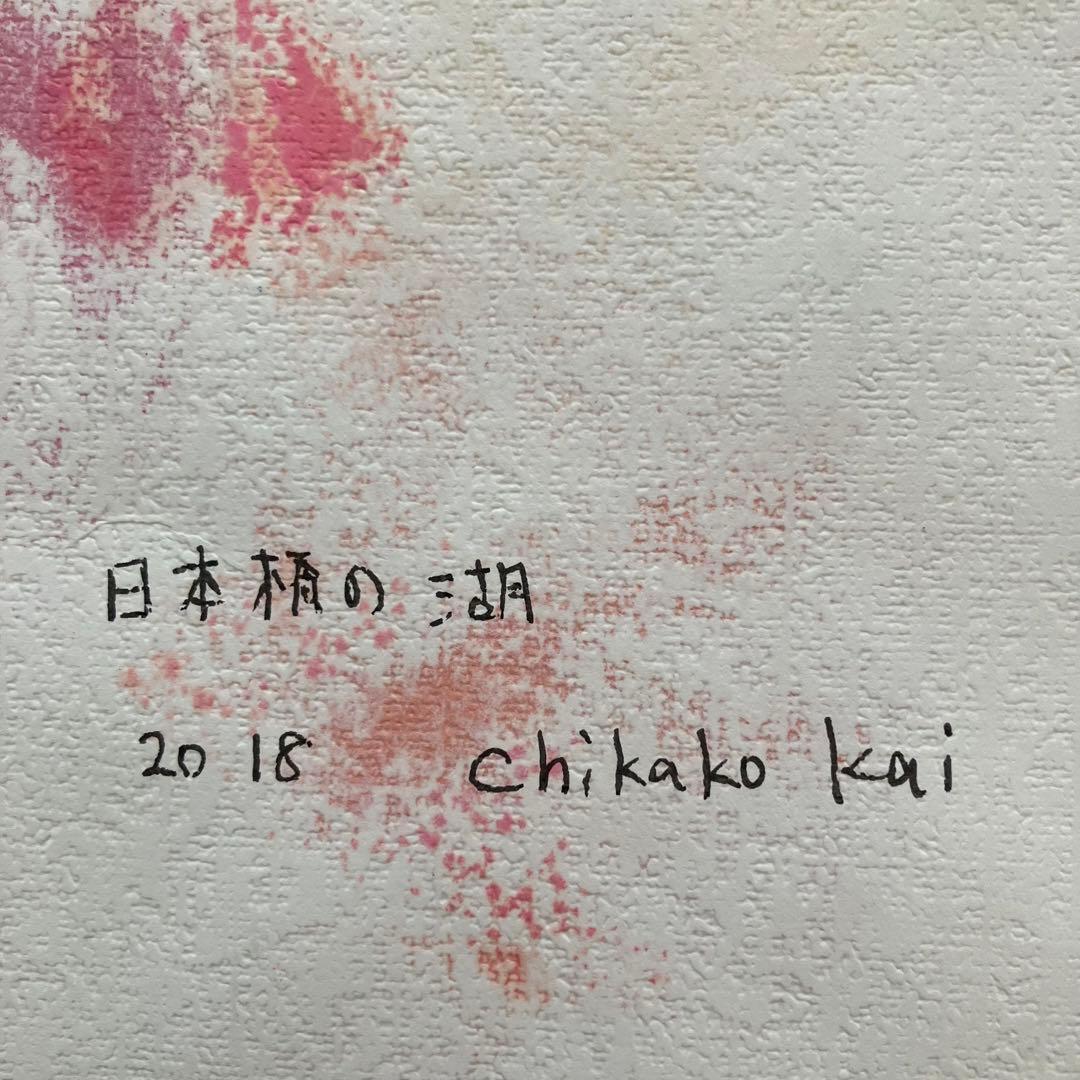 日本柄の湖
2018 Chikako Kai